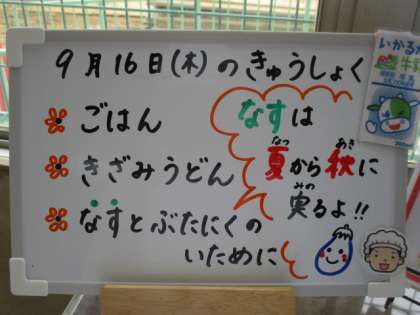 9月16日(木)のきゅうしょく
ごはん
きざみうどん
なすとぶたにくの
いために
なすは
夏から秋に
なつ あき
実るよ!!
みの
いかるが
牛乳